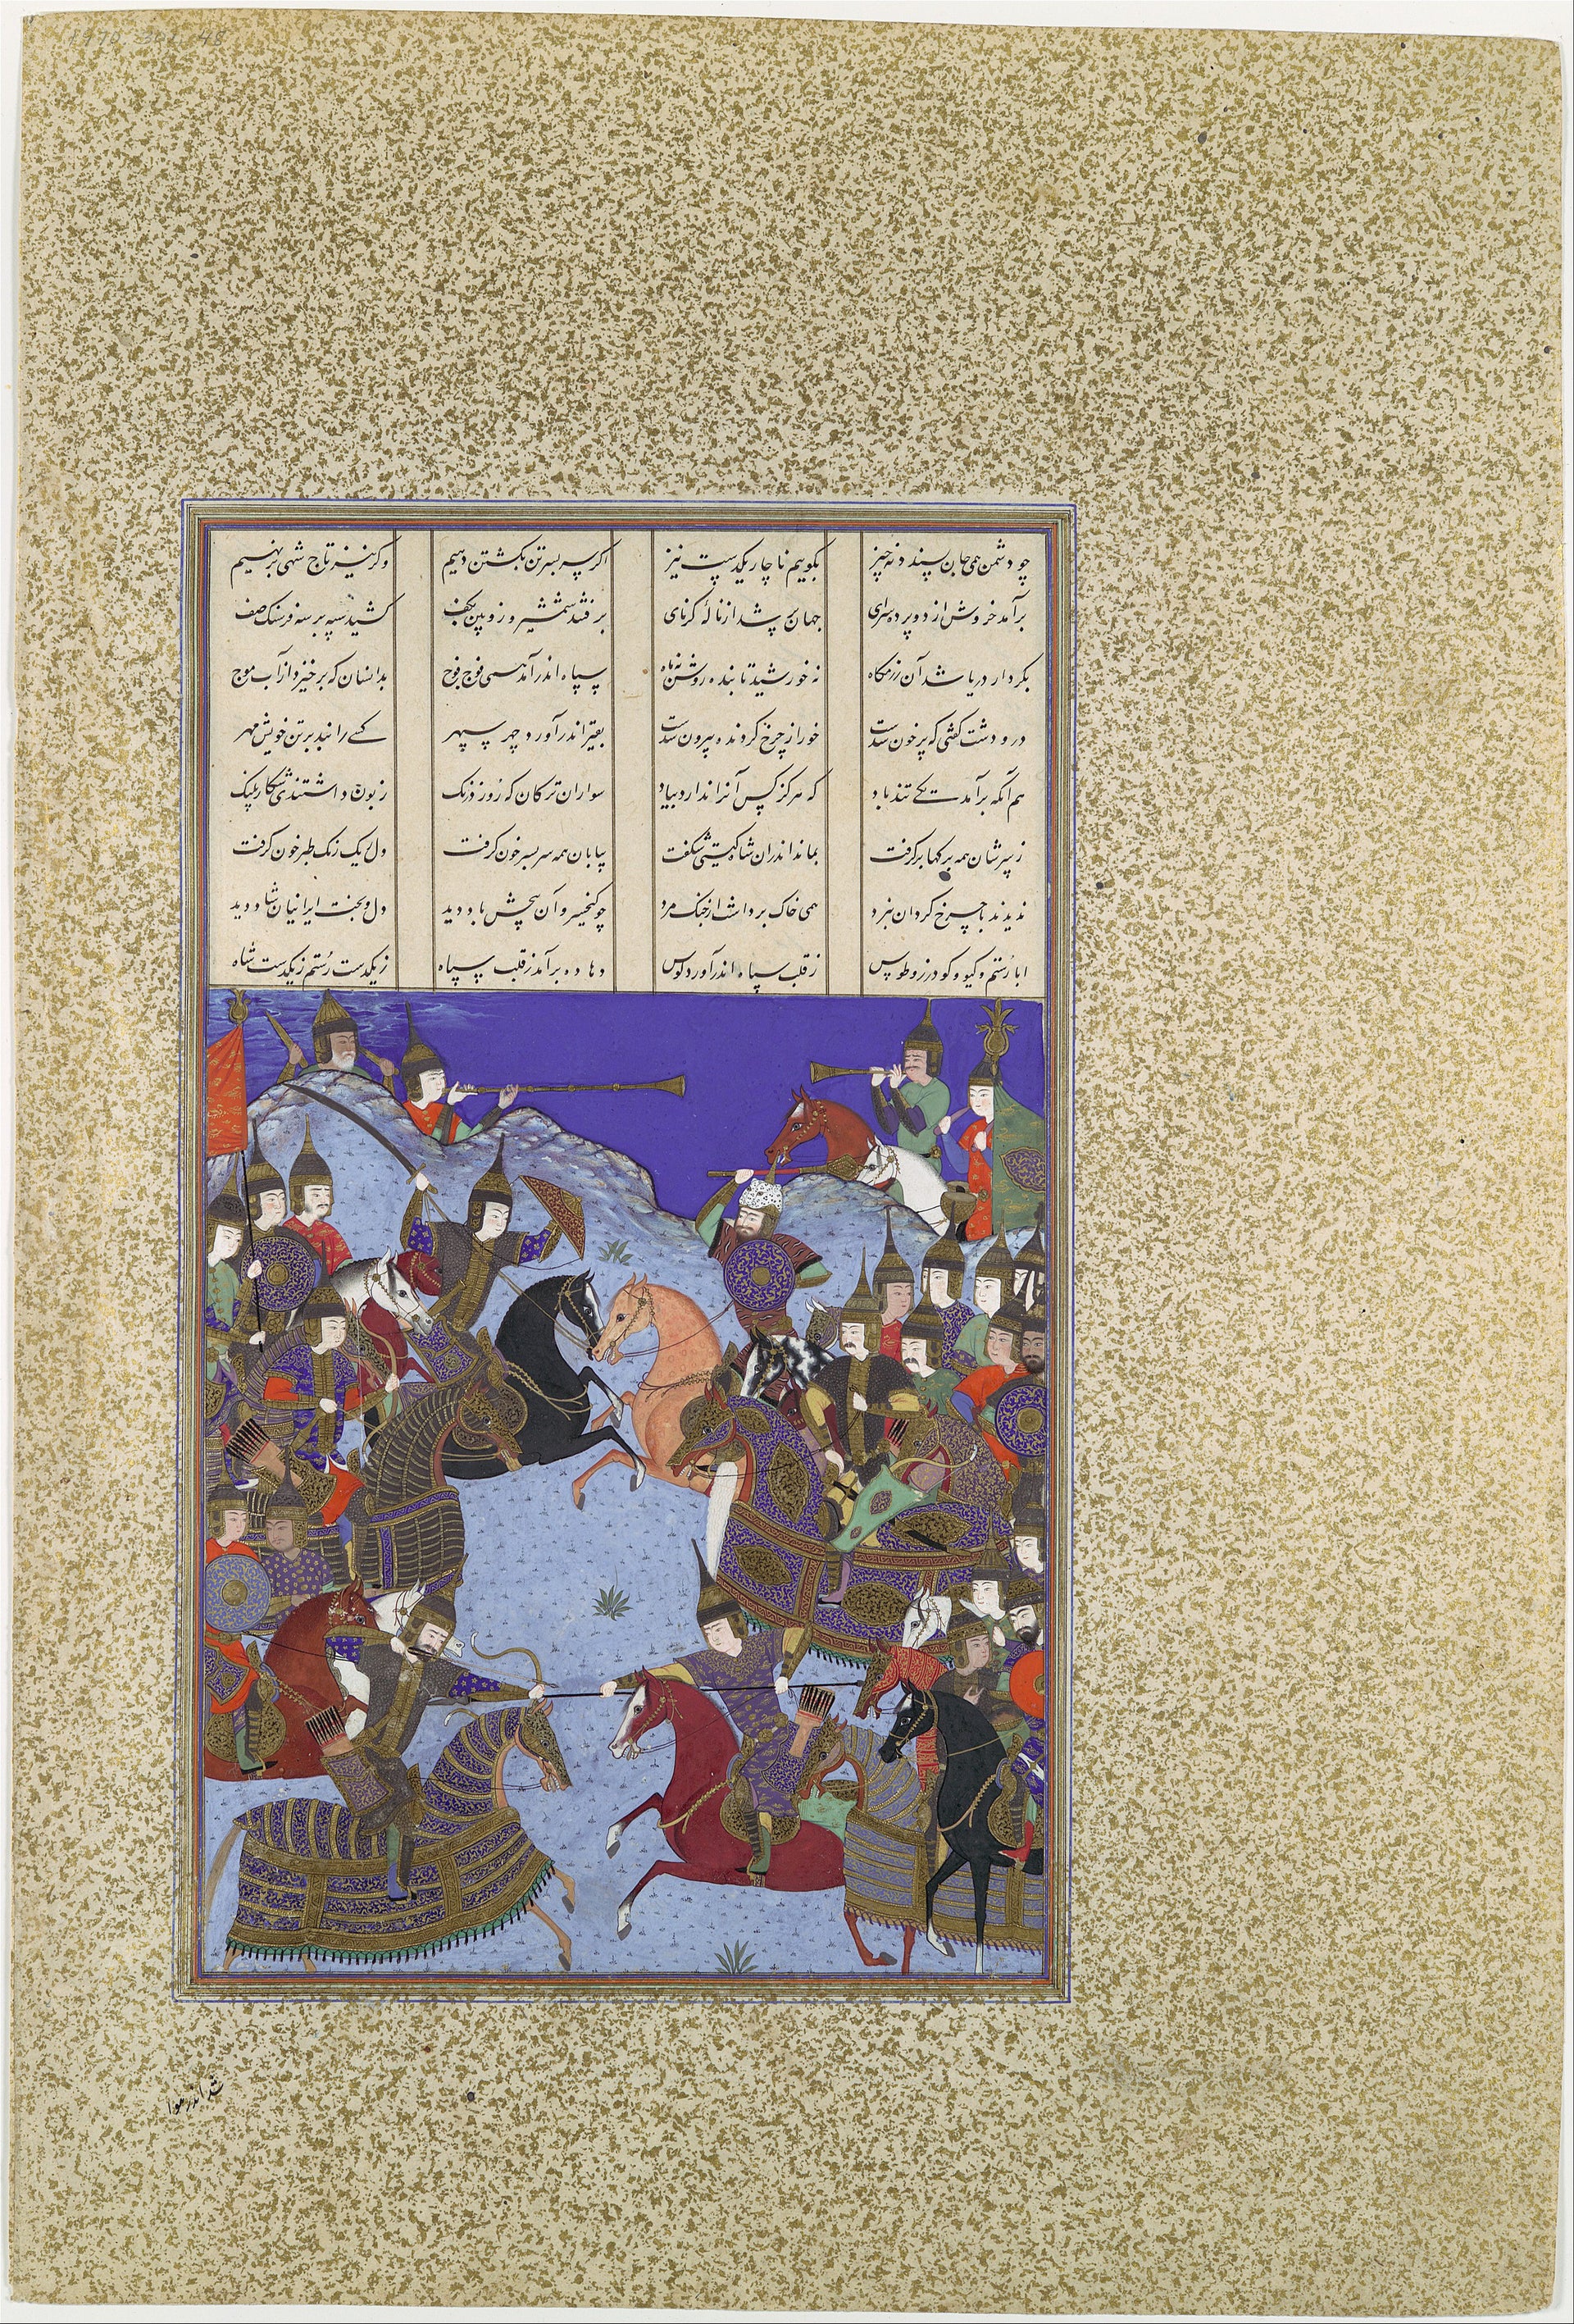 چو دشمن همی جان پسندد نه چیز بکوشیم ناچار یکدست نیز اکر سر بسر تن بکشتن دهیم وکر نیز تاج شهی بر نهیم
برآمد خروش از دو پرده سرای جهان پر شد از نالهٔ کرنای برفتند شمشیر و زوپین بکف کشید سپه بر سه فرسنک صف
بکردار دریا شد آن رزمکاه نه خورشید تابنده روشن نه ماه سپاه اندر آمد همی فوج فوج بدانسان که برخیزد از آب موج
در و دشت کفتی که پر خون شدست خور از چرخ کردنده بیرون شدست بقیر اندر آورد چهر سپهر کسی را نبد بر تن خویش مهر
هم آنکه برآمد یکی تند باد که هرکز کس آنرا ندارد بیاد سواران ترکان که روز درنک زبون داشتندی شکار پلنک
ز سرشان همه برکها برکرفت بماند اندران شاه کیتی شکفت بیابان همه سر بسر خون کرفت دل ریک رنک طبرخون کرفت
ندیدند با چرخ کردان نبرد همی خاک برداشت از جنک مرد چو کیخسرو آن پیچش باد دید دل و بخت ایرانیان شاد دید
ابا رستم و کیو و کودرز و طوس ز قلب سپاه اندر آورد کوس دهاده برآمد ز قلب سپاه ز یکدست رستم ز یکدست شاه
شد اندر هوا